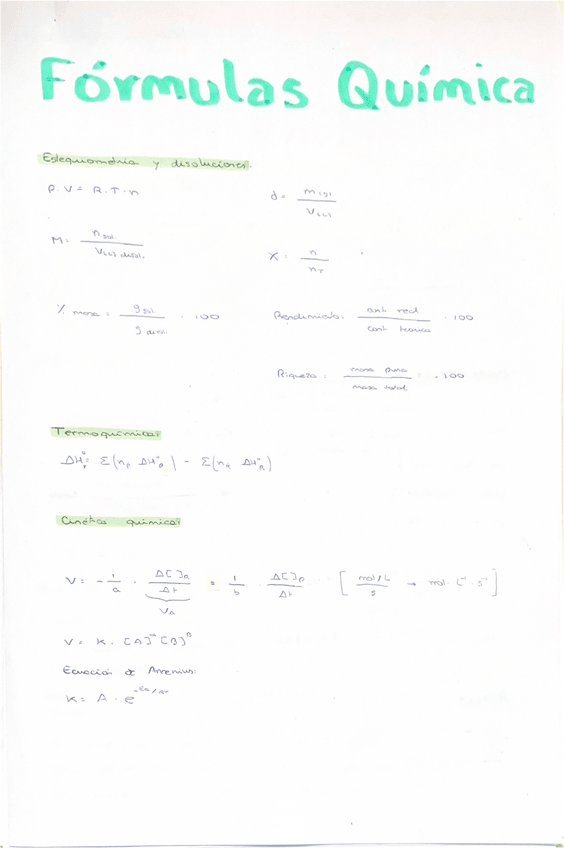 Fórmulas Química
Estequiometría y disoluciones.
P.V = R.T.n
d = m(g) / V(L)
M = n sol. / V(L) disol.
X = n / nT
% masa = g sol / g disol. · 100
Rendimiento: cant real / cant teórica · 100
Riqueza: masa pura / masa total. · 100
Termoquímica:
ΔHr° = Σ(np ΔH°p) - Σ(nr ΔH°R)
Cinética química:
V = - 1/a · Δ[ ]A / Δt = 1/b · Δ[ ]P / Δt [ mol/L / s → mol · L⁻¹ · s⁻¹ ]
VA
V = K · [A]ᵅ [B]ᵝ
Ecuación de Arrenius:
K = A · e^-Ea/RT